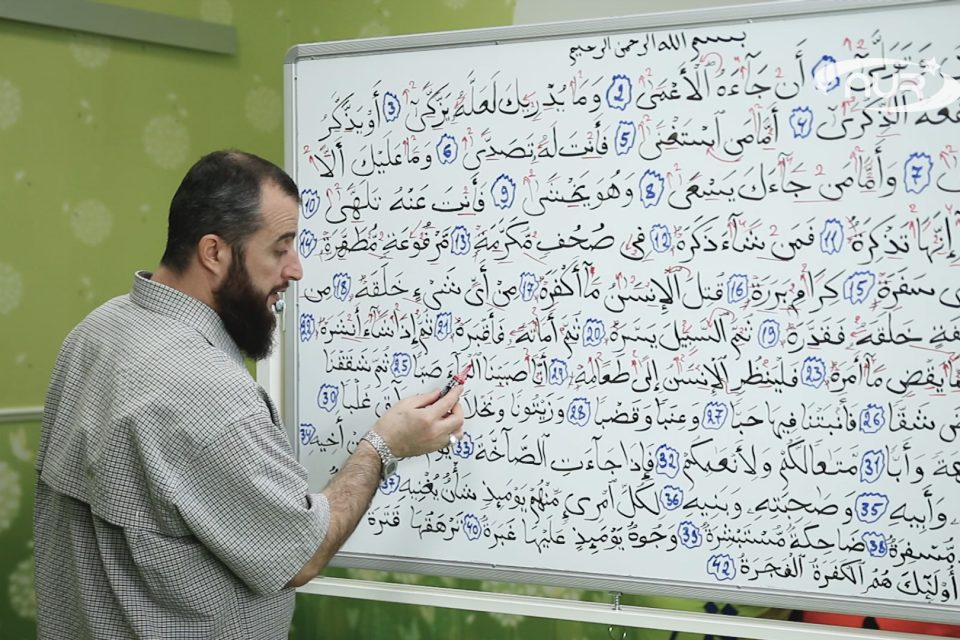 بسم الله الرحمن الرحيم
وَتَوَلَّىٰٓ ١ أَن جَآءَهُ ٱلْأَعْمَىٰ 2 وَمَا يُدْرِيكَ لَعَلَّهُۥ يَزَّكَّىٰٓ 3 أَوْ يَذَّكَّرُ
ٱلذِّكْرَىٰٓ 4 أَمَّا مَنِ ٱسْتَغْنَىٰ 5 فَأَنتَ لَهُۥ تَصَدَّىٰ 6 وَمَا عَلَيْكَ أَلَّا
7 وَأَمَّا مَن جَآءَكَ يَسْعَىٰ 8 وَهُوَ يَخْشَىٰ 9 فَأَنتَ عَنْهُ تَلَهَّىٰ 10
إِنَّهَا تَذْكِرَةٌ 11 فَمَن شَآءَ ذَكَرَهُۥ 12 فِى صُحُفٍ مُّكَرَّمَةٍ 13 مَّرْفُوعَةٍ مُّطَهَّرَةٍۭ 14
سَفَرَةٍ 15 كِرَامٍۭ بَرَرَةٍ 16 قُتِلَ ٱلْإِنسَـٰنُ مَآ أَكْفَرَهُۥ 17 مِنْ أَىِّ شَىْءٍ خَلَقَهُۥ 18 مِن
خَلَقَهُۥ فَقَدَّرَهُۥ 19 ثُمَّ ٱلسَّبِيلَ يَسَّرَهُۥ 20 ثُمَّ أَمَاتَهُۥ فَأَقْبَرَهُۥ 21 ثُمَّ إِذَا شَآءَ أَنشَرَهُۥ 22
يَقْضِ مَآ أَمَرَهُۥ 23 فَلْيَنظُرِ ٱلْإِنسَـٰنُ إِلَىٰ طَعَامِهِۦٓ 24 أَنَّا صَبَبْنَا صَبًّا 25 ثُمَّ شَقَقْنَا
شَقًّا 26 فَأَنۢبَتْنَا فِيهَا حَبًّا 27 وَعِنَبًا وَقَضْبًا 28 وَزَيْتُونًا غُلْبًا 30
وَأَبًّا 31 مَّتَـٰعًا لَّكُمْ وَلِأَنْعَـٰمِكُمْ 32 فَإِذَا جَآءَتِ ٱلصَّآخَّةُ 33 أَخِيهِ
وَأَبِيهِ 35 وَصَـٰحِبَتِهِۦ وَبَنِيهِ 36 لِكُلِّ ٱمْرِئٍ مِّنْهُمْ يَوْمَئِذٍ شَأْنٌ يُغْنِيهِ
مُّسْفِرَةٌ 38 ضَاحِكَةٌ مُّسْتَبْشِرَةٌ 39 وَوُجُوهٌ يَوْمَئِذٍ عَلَيْهَا غَبَرَةٌ 40 تَرْهَقُهَا قَتَرَةٌ
أُو۟لَـٰٓئِكَ هُمُ ٱلْكَفَرَةُ ٱلْفَجَرَةُ 42
NUR